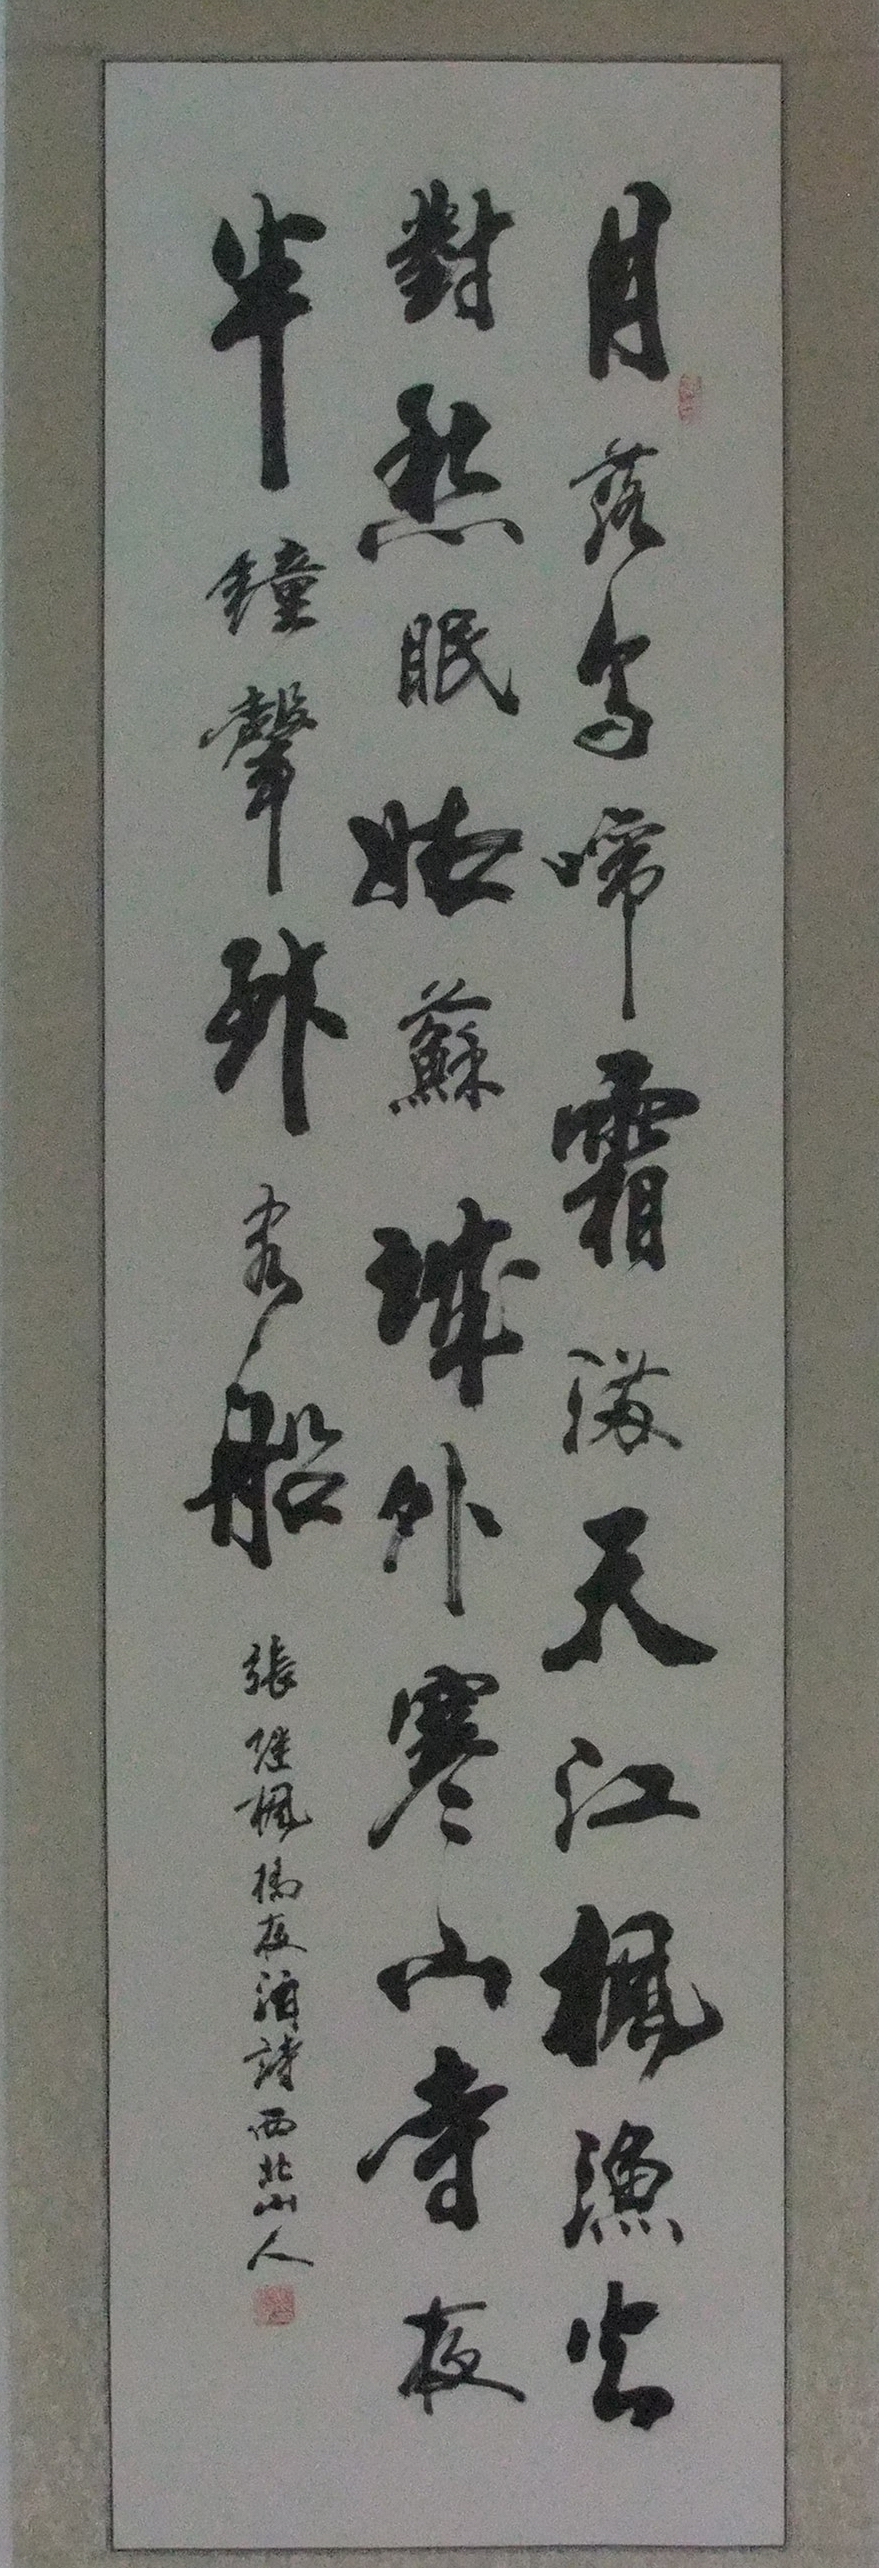 月落烏啼霜滿天江楓漁火
對愁眠姑蘇城外寒山寺夜
半鐘聲到客船
張繼楓橋夜泊詩西北山人